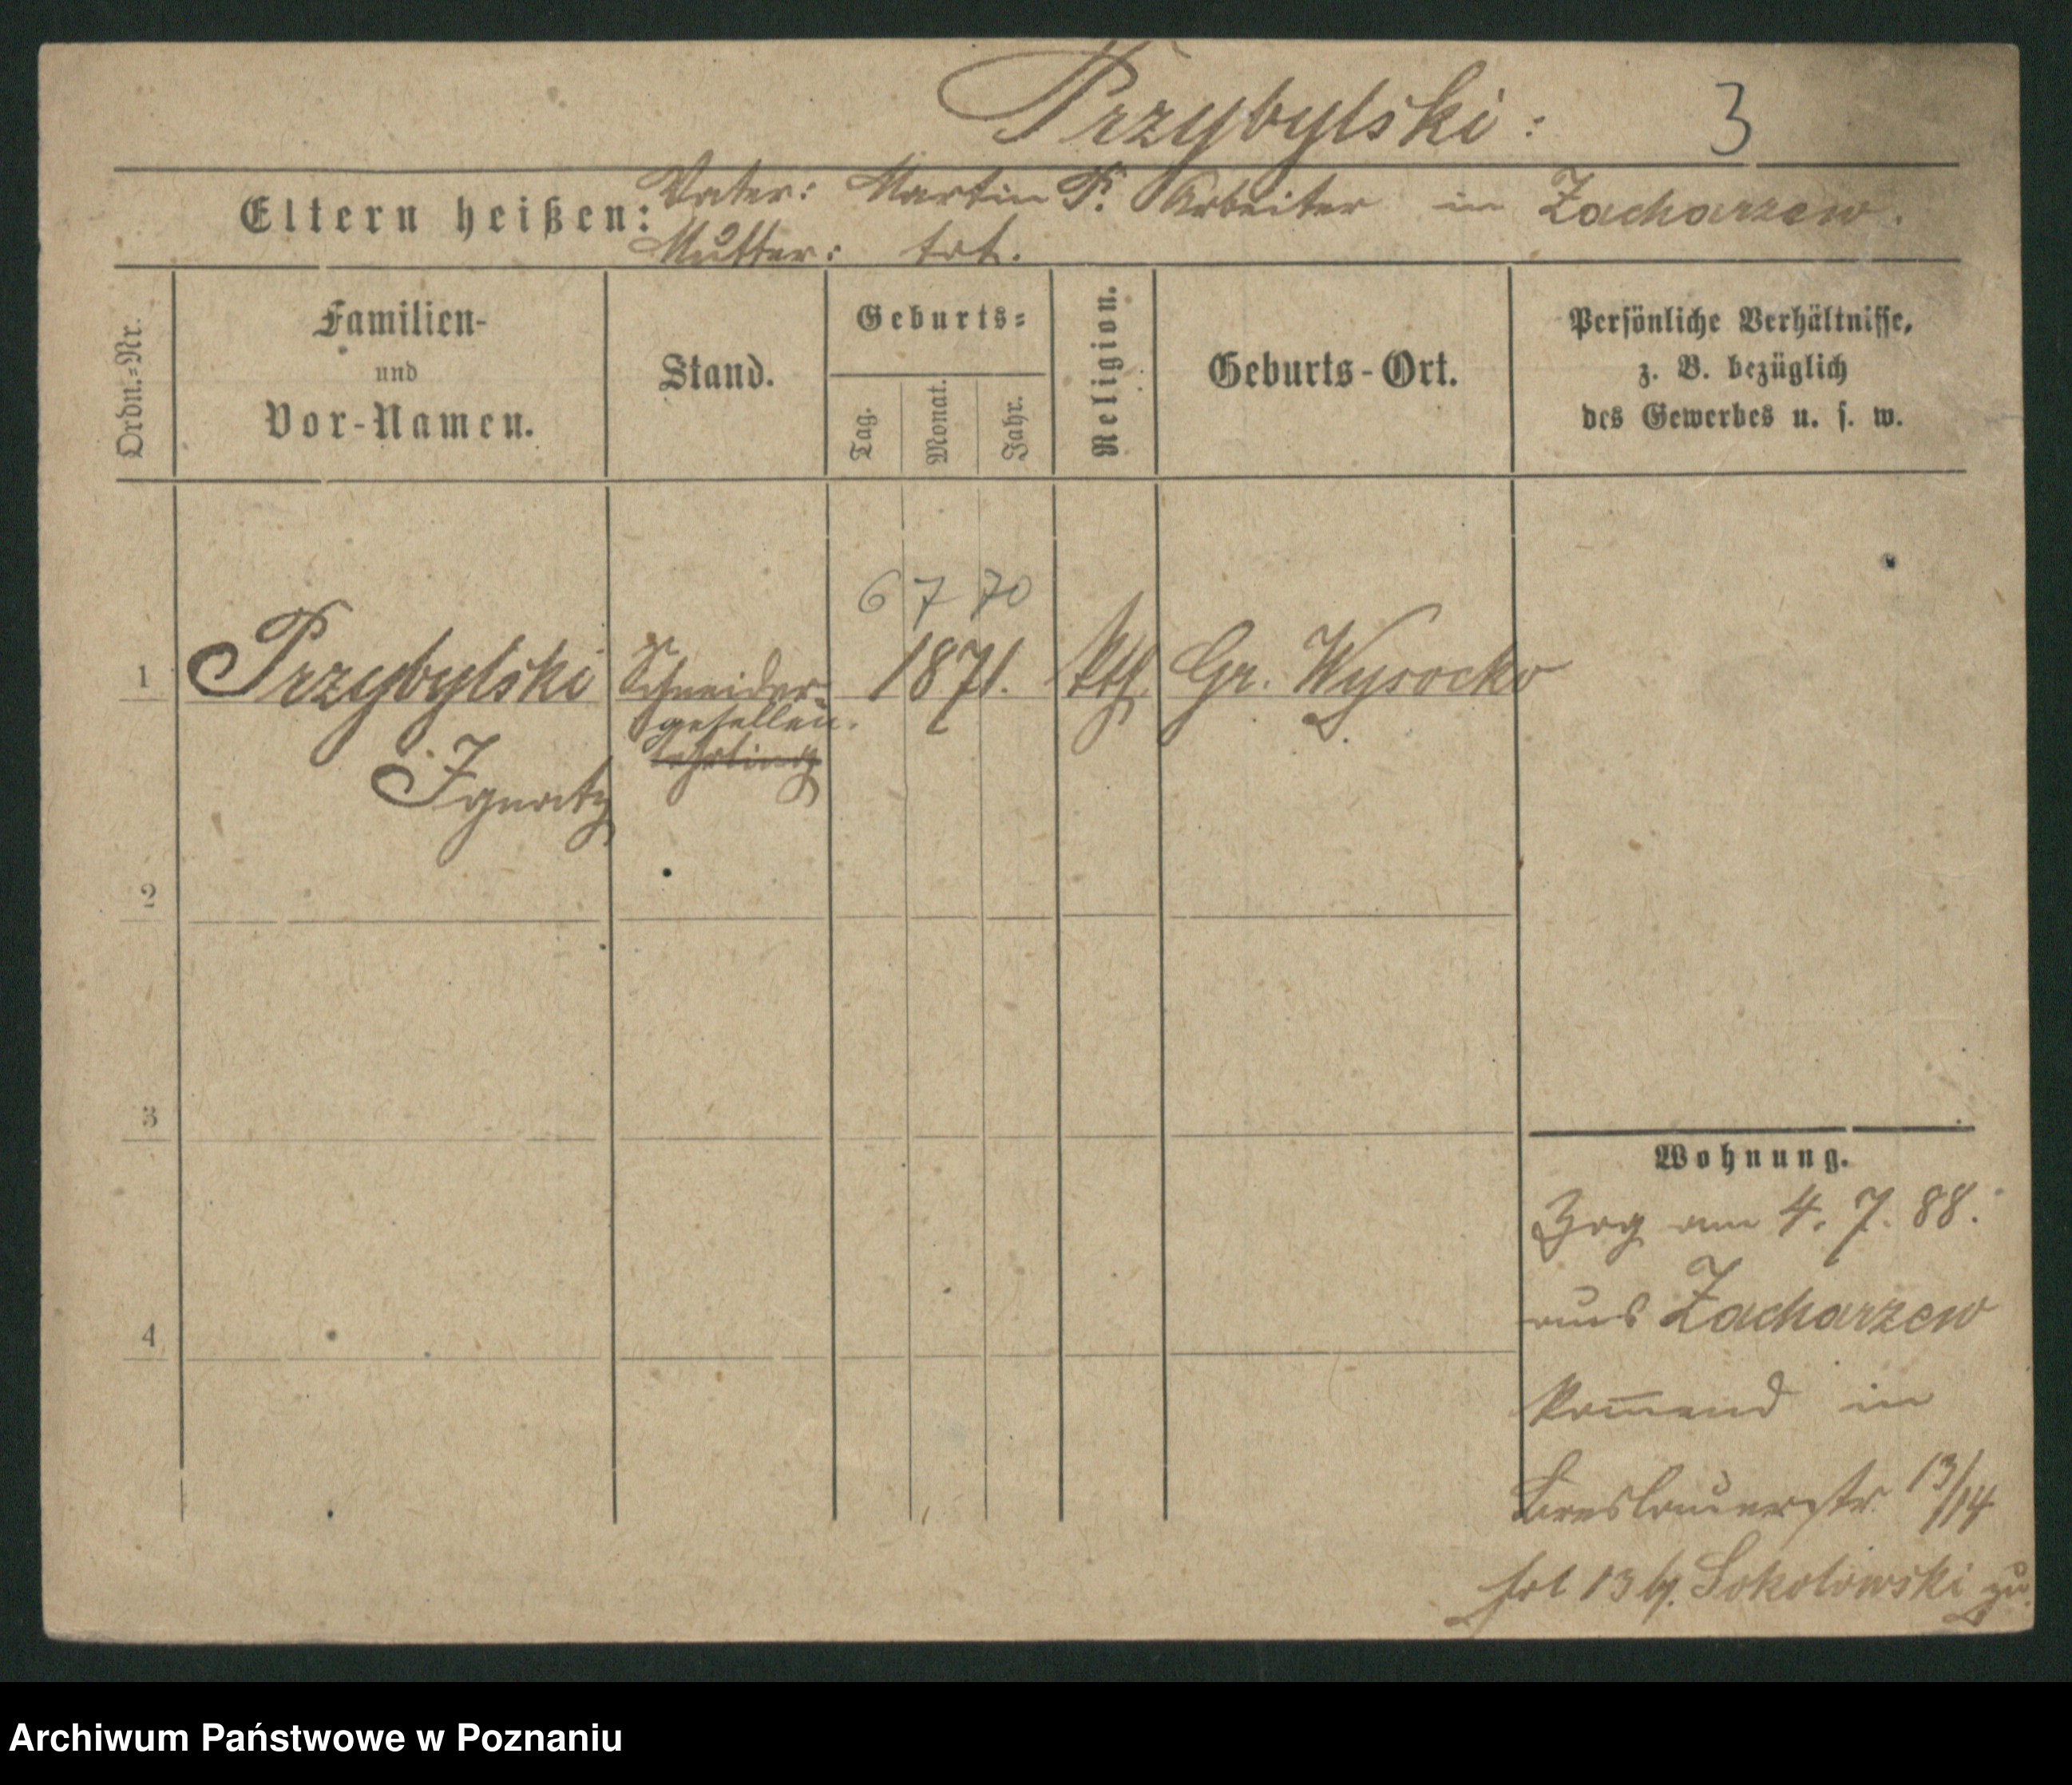 Przybylski: 3
Eltern heißen: Vater: Martin P. Arbeiter in Zacharzew.
Mutter: tot.
Ordn.=Nr.
Familien-
und
Vor-Namen.
Stand.
Geburts=
Tag. Monat. Jahr.
Religion.
Geburts-Ort.
Persönliche Verhältnisse,
z. B. bezüglich
des Gewerbes u. s. w.
6 7 70
1 Przybylski Schneider- 1871. kth. Gr. Wysocko
gesellen.
lehrling
Ignatz
2
3
4
Wohnung.
Zog am 4. 7. 88.
aus Zacharzew
kom̅end in
Breslauerstr 13/14
13 b. Sokolowski zu.
Archiwum Państwowe w Poznaniu